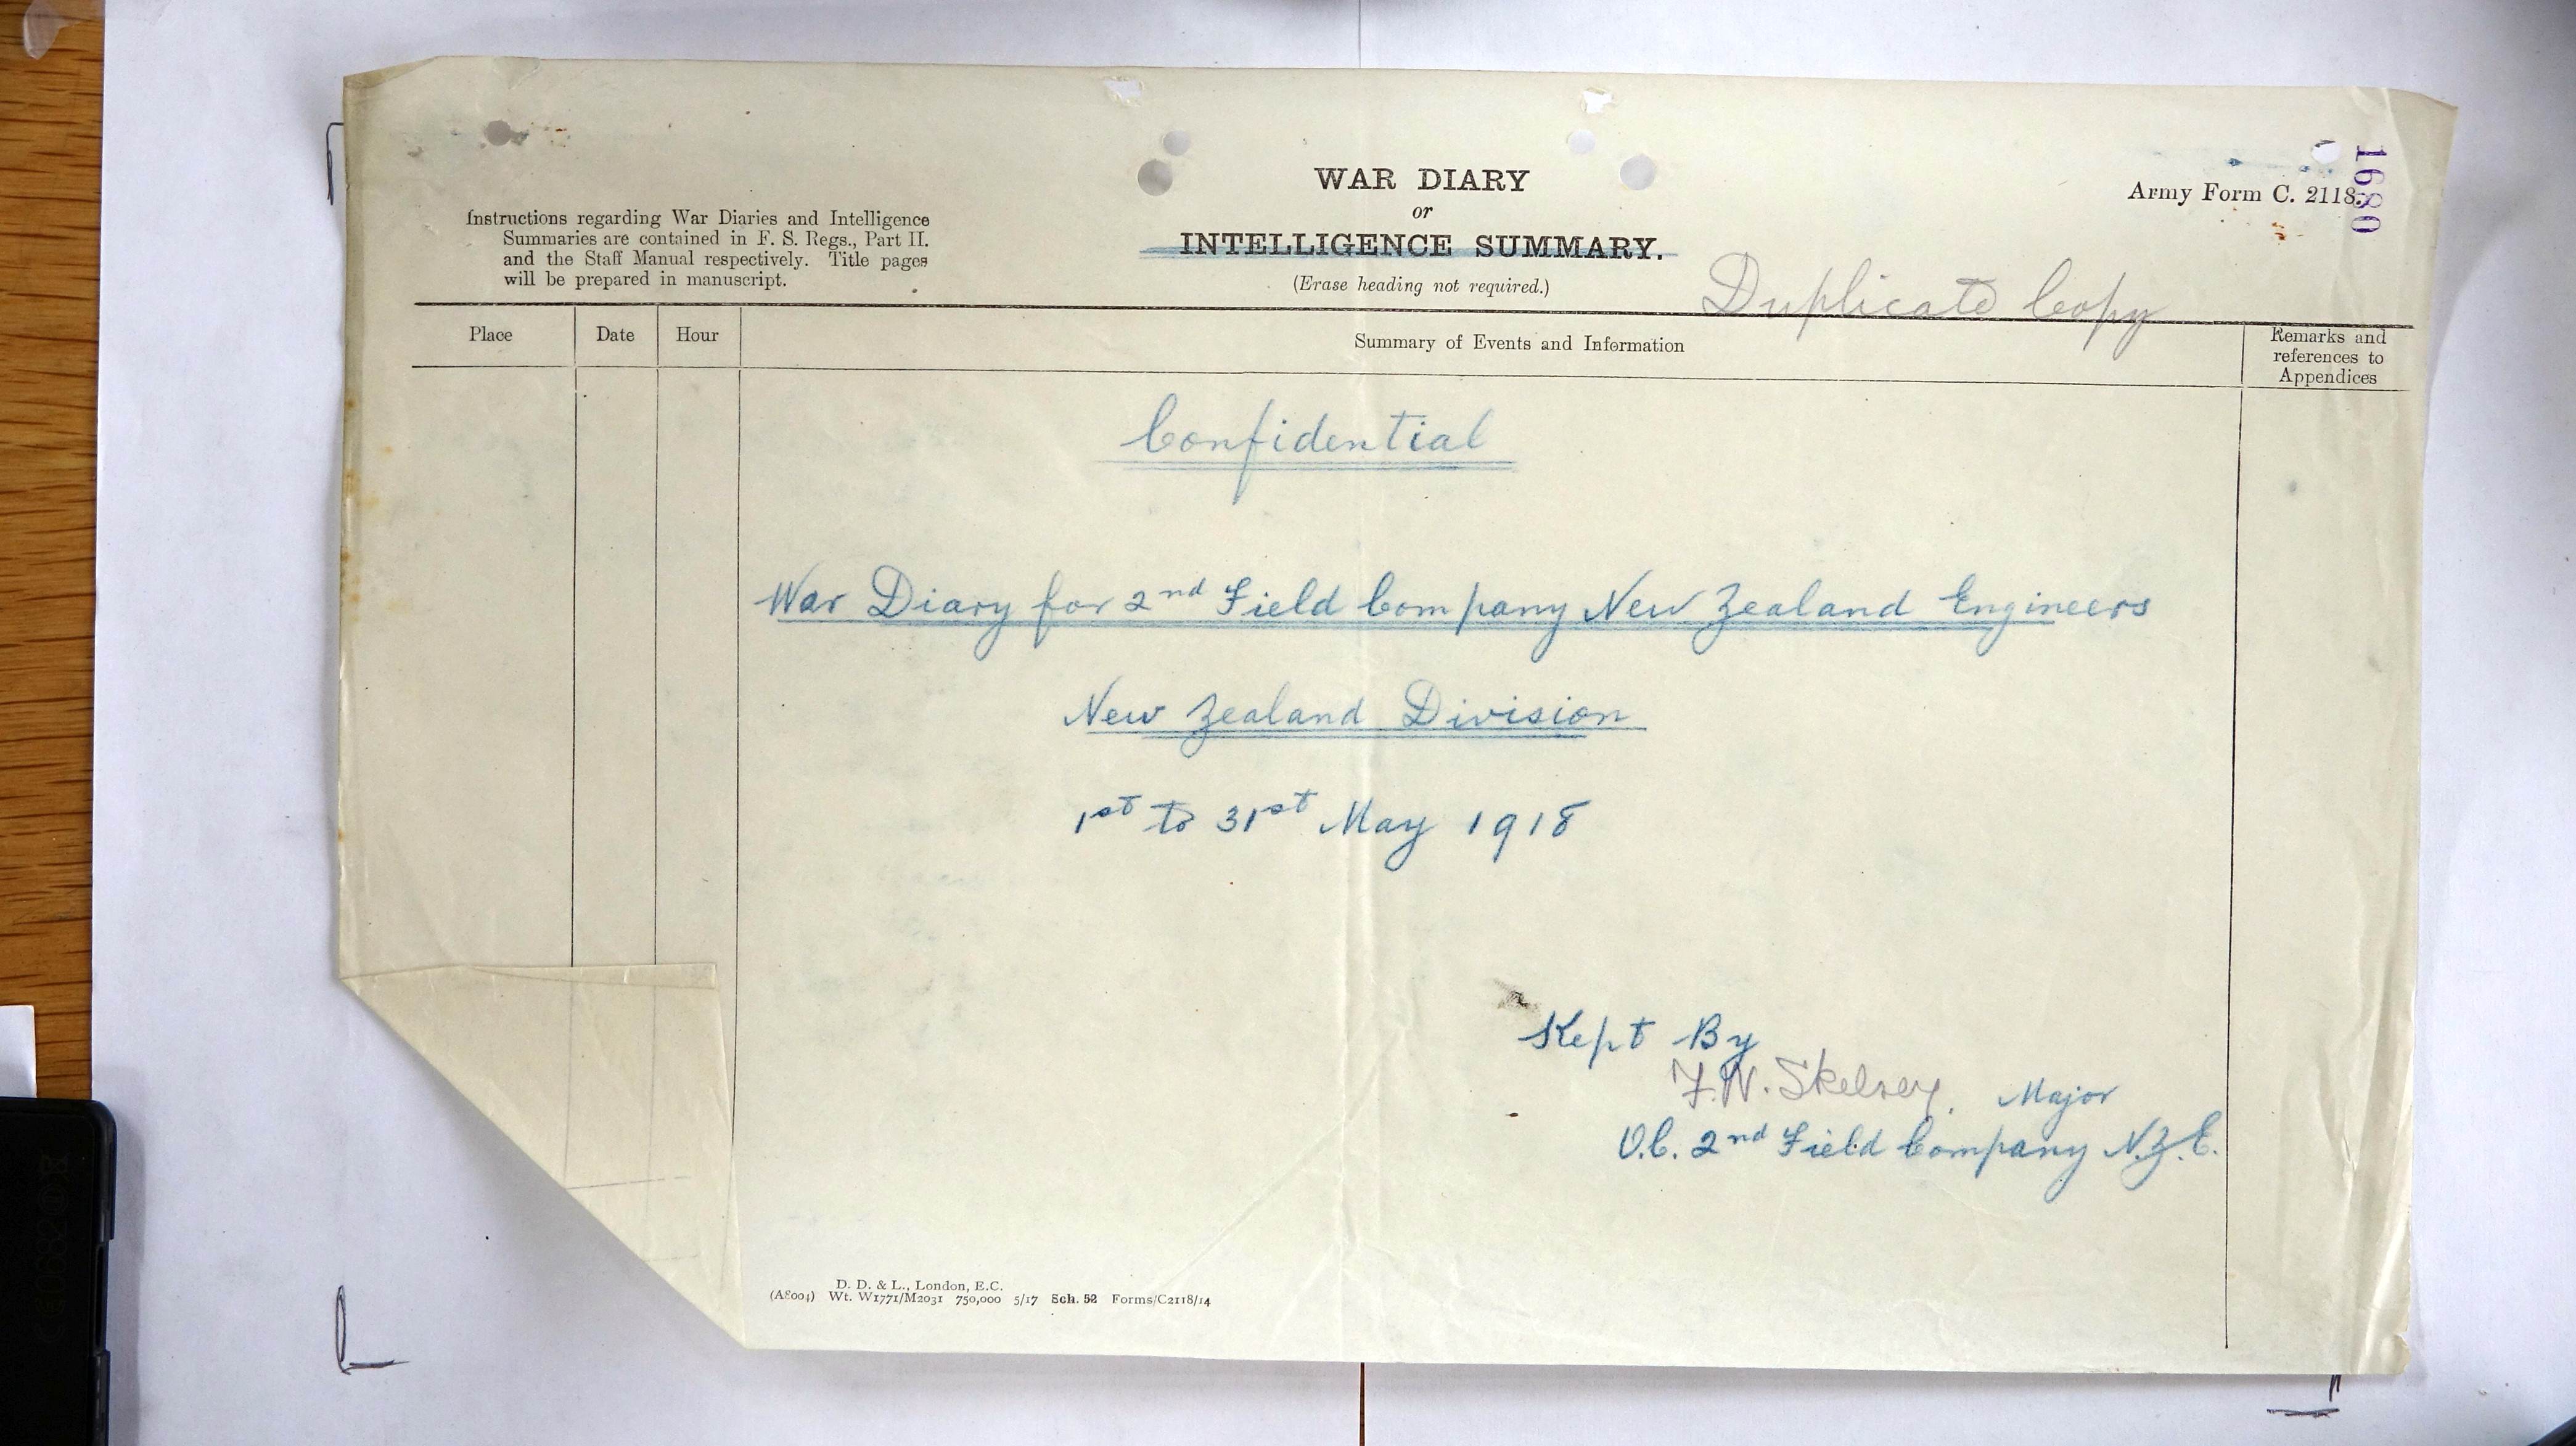 1680
Army Form C. 2118.
WAR DIARY
or
INTELLIGENCE SUMMARY.
(Erase heading not required.)
Instructions regarding War Diaries and Intelligence
Summaries are contained in F. S. Regs., Part II.
and the Staff Manual respectively. Title pages
will be prepared in manuscript.
Duplicate Copy
Place Date Hour Summary of Events and Information Remarks and
references to
Appendices
Confidential
War Diary for 2nd Field Company New Zealand Engineers
New Zealand Division
1st to 31st May 1918
Kept By
F.W. Skelsey, Major
O.C. 2nd Field Company N.Z.E.
D. D. & L., London, E.C.
(A8004) Wt. W1771/M2031 750,000 5/17 Sch. 52 Forms/C2118/14